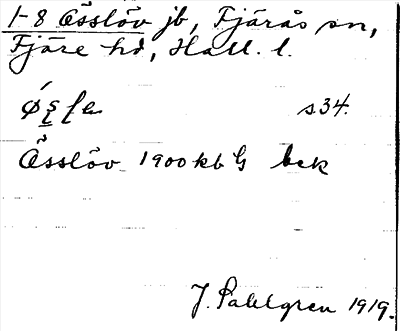 1-8 Össlöv jb, Fjärås sn,
Fjäre hd, Hall. l.
s34.
Össlöv 1900 kb G bek
J. Pahlgren 1919.